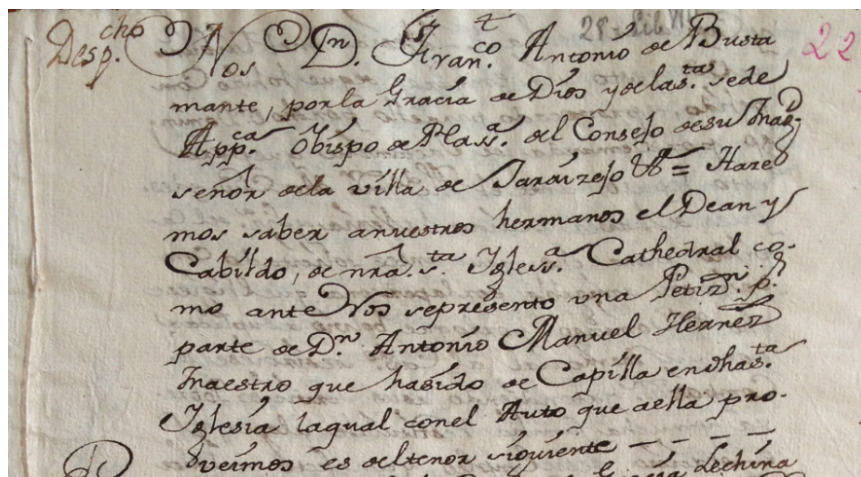 Desp.cho Nos Dn. Fran.co Antonio de Busta 22
mante, por la Gracia de Dios y de la s.ta sede
App.ca Obispo de Plas.a del Consejo de su Mag.
señor de la villa de Jaraizejo &a = Haze
mos saber a nuestros hermanos el Dean y
Cabildo, de nrâ s.ta Igless.a Cathedral co-
mo ante Nos se presento una Petizn. p.r
parte de D.n Antonio Manuel Hernez
Maestro que ha sido de Capilla en dha s.ta
Iglesia la qual con el Auto que a ella pro-
veimos es del tenor siguiente - - - -
Lechina